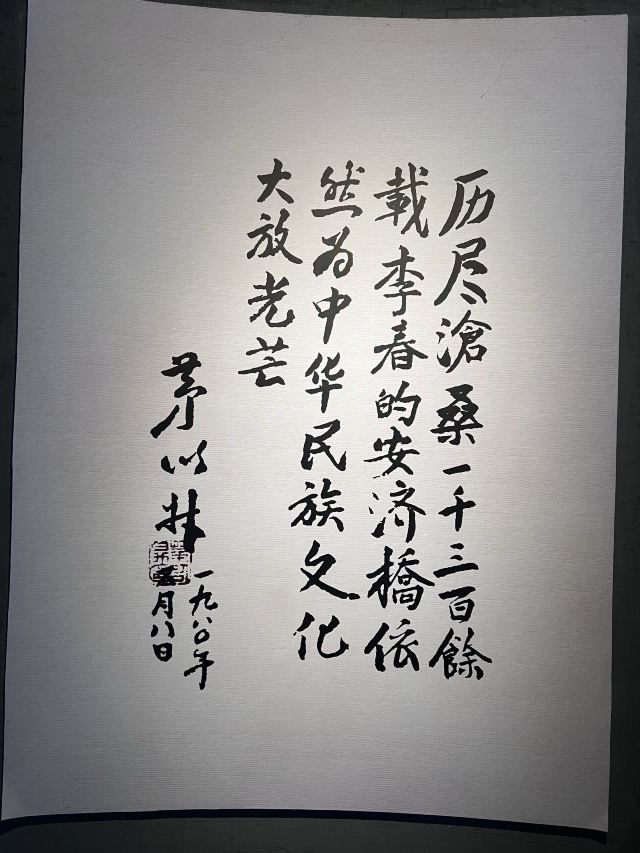 历尽滄桑一千三百餘
載李春的安济橋依
然为中华民族文化
大放光芒
茅以升
一九八〇年
月八日